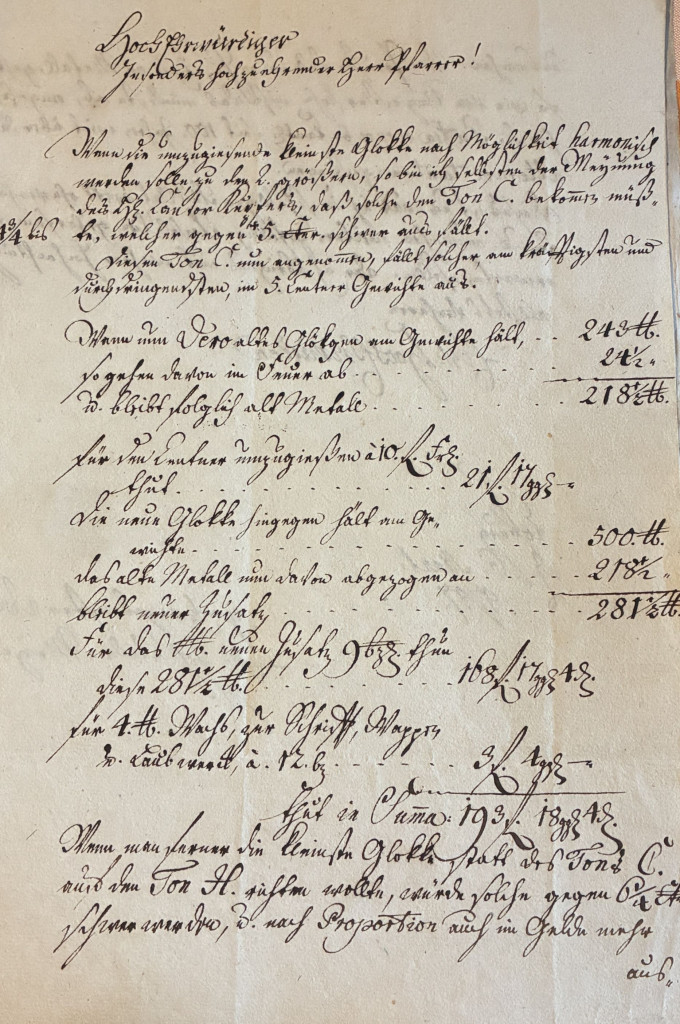 HochEhrwürdiger
Insonders hochzuehrender Herr Pfarrer!
Wenn die umzugiesende kleinste Glokke nach Möglichkeit harmonisch
werden solle zu den 2. größern, so bin ich selbsten der Meynung
des H. Cantor Kupfers, daß solche den Ton C. bekommen müß-
4 3/4 bis
te, welcher gegen 5. Ctr. schwer aus fällt.
Diesen Ton C. nun angenommen, fällt solcher, am kräfftigsten und
durchdringendsten, in 5. Centner Gewichte aus.
Wenn nun Dero altes Glökgen am Gewichte hält, . . 243 ℔.
so gehen davon im Feuer ab . . . 24 1/2 "
u. bleibt folglich alt Metall . . . 218 1/2 ℔.
für den Centner umzugießen à 10. f. Frk.
thut . . . 21 f. 17 ggr. —
Die neue Glokke hingegen hält am Ge-
wichte . . . 500. ℔.
das alte Metall nun davon abgezogen, an . . . 218 1/2 "
bleibt neuer Zusatz . . . 281 1/2 ℔.
Für das ℔. neuen Zusatz 9 bz. thun
diese 281 1/2 ℔. . . . 168 f. 17 ggr. 4 d.
für 4. ℔. Wachs, zur Schrifft, Wappen
u. Laubwerck, à. 12. bz . . . 3 f. 4 ggr. —
thut in Summa: 193 f. 18 ggr. 4 d.
Wenn man ferner die kleinste Glokke statt des Tons C.
aus den Ton H. richten wollte, würde solche gegen 6 1/4
schwer werden, u. nach Proportion auch im Gelde mehr
aus-